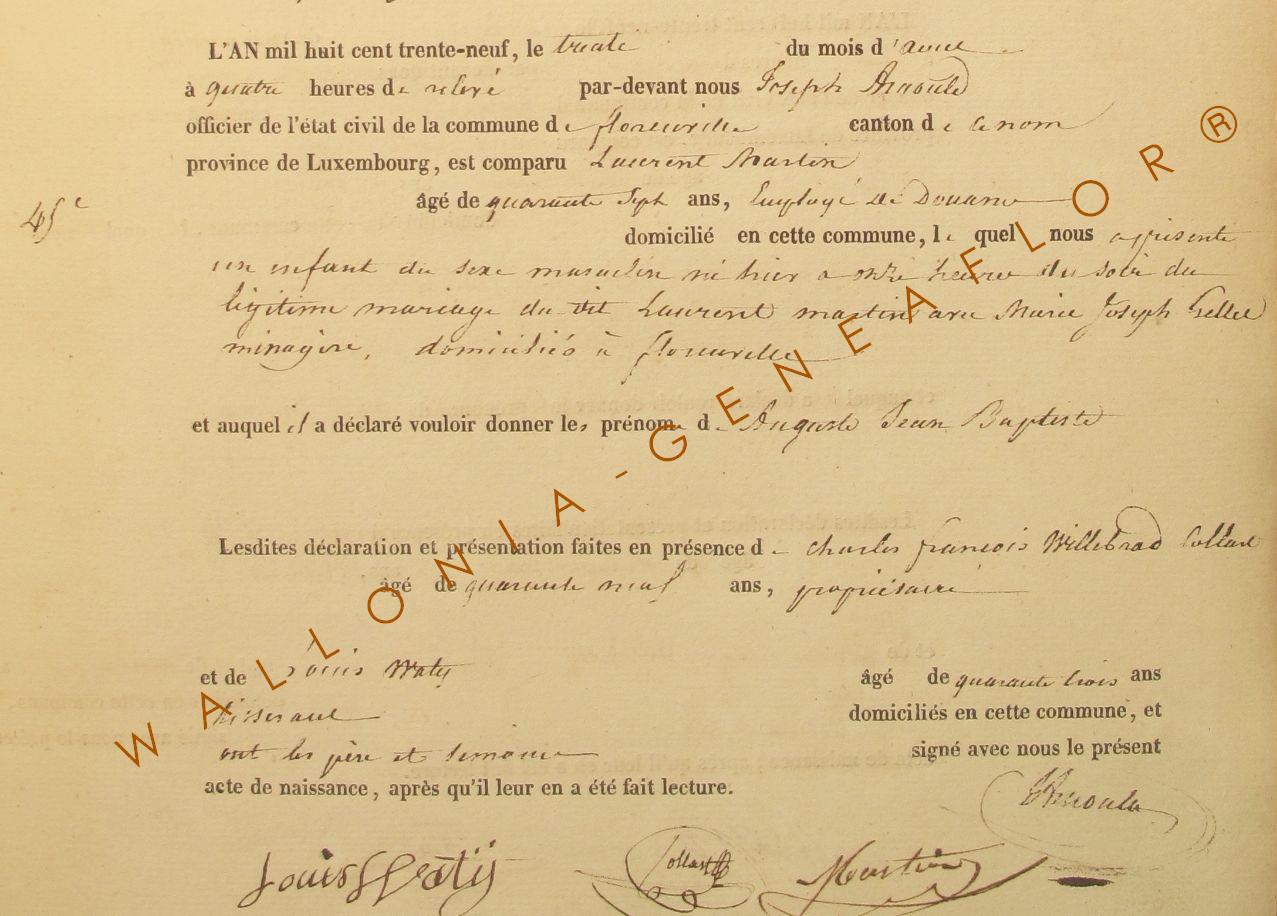 L'AN mil huit cent trente-neuf, le trente du mois d'avril
à quatre heures de relevé par-devant nous Joseph Arnould
officier de l'état civil de la commune de florenville canton de
province de Luxembourg, est comparu Laurent Martin
âgé de quarante Sept ans, Employé de Douane
45e
domicilié en cette commune, le quel nous a présenté
un enfant du sexe masculin né hier a onze heures du soir du
légitime mariage du dit Laurent martin avec Marie Joseph
ménagère, domiciliés à florenville
et auquel il a déclaré vouloir donner les prénoms de Auguste Jean Baptiste
Lesdites déclaration et présentation faites en présence de charles francois Willebrad Collard
âgé de quarante neuf ans, propriétaire
et de Louis Waty âgé de quarante trois ans
tisserant domiciliés en cette commune, et
ont les père et temoins signé avec nous le présent
acte de naissance, après qu'il leur en a été fait lecture.
Arnould
Louis Waty Collard Martin
WALLONIA-GENEAFLOR®